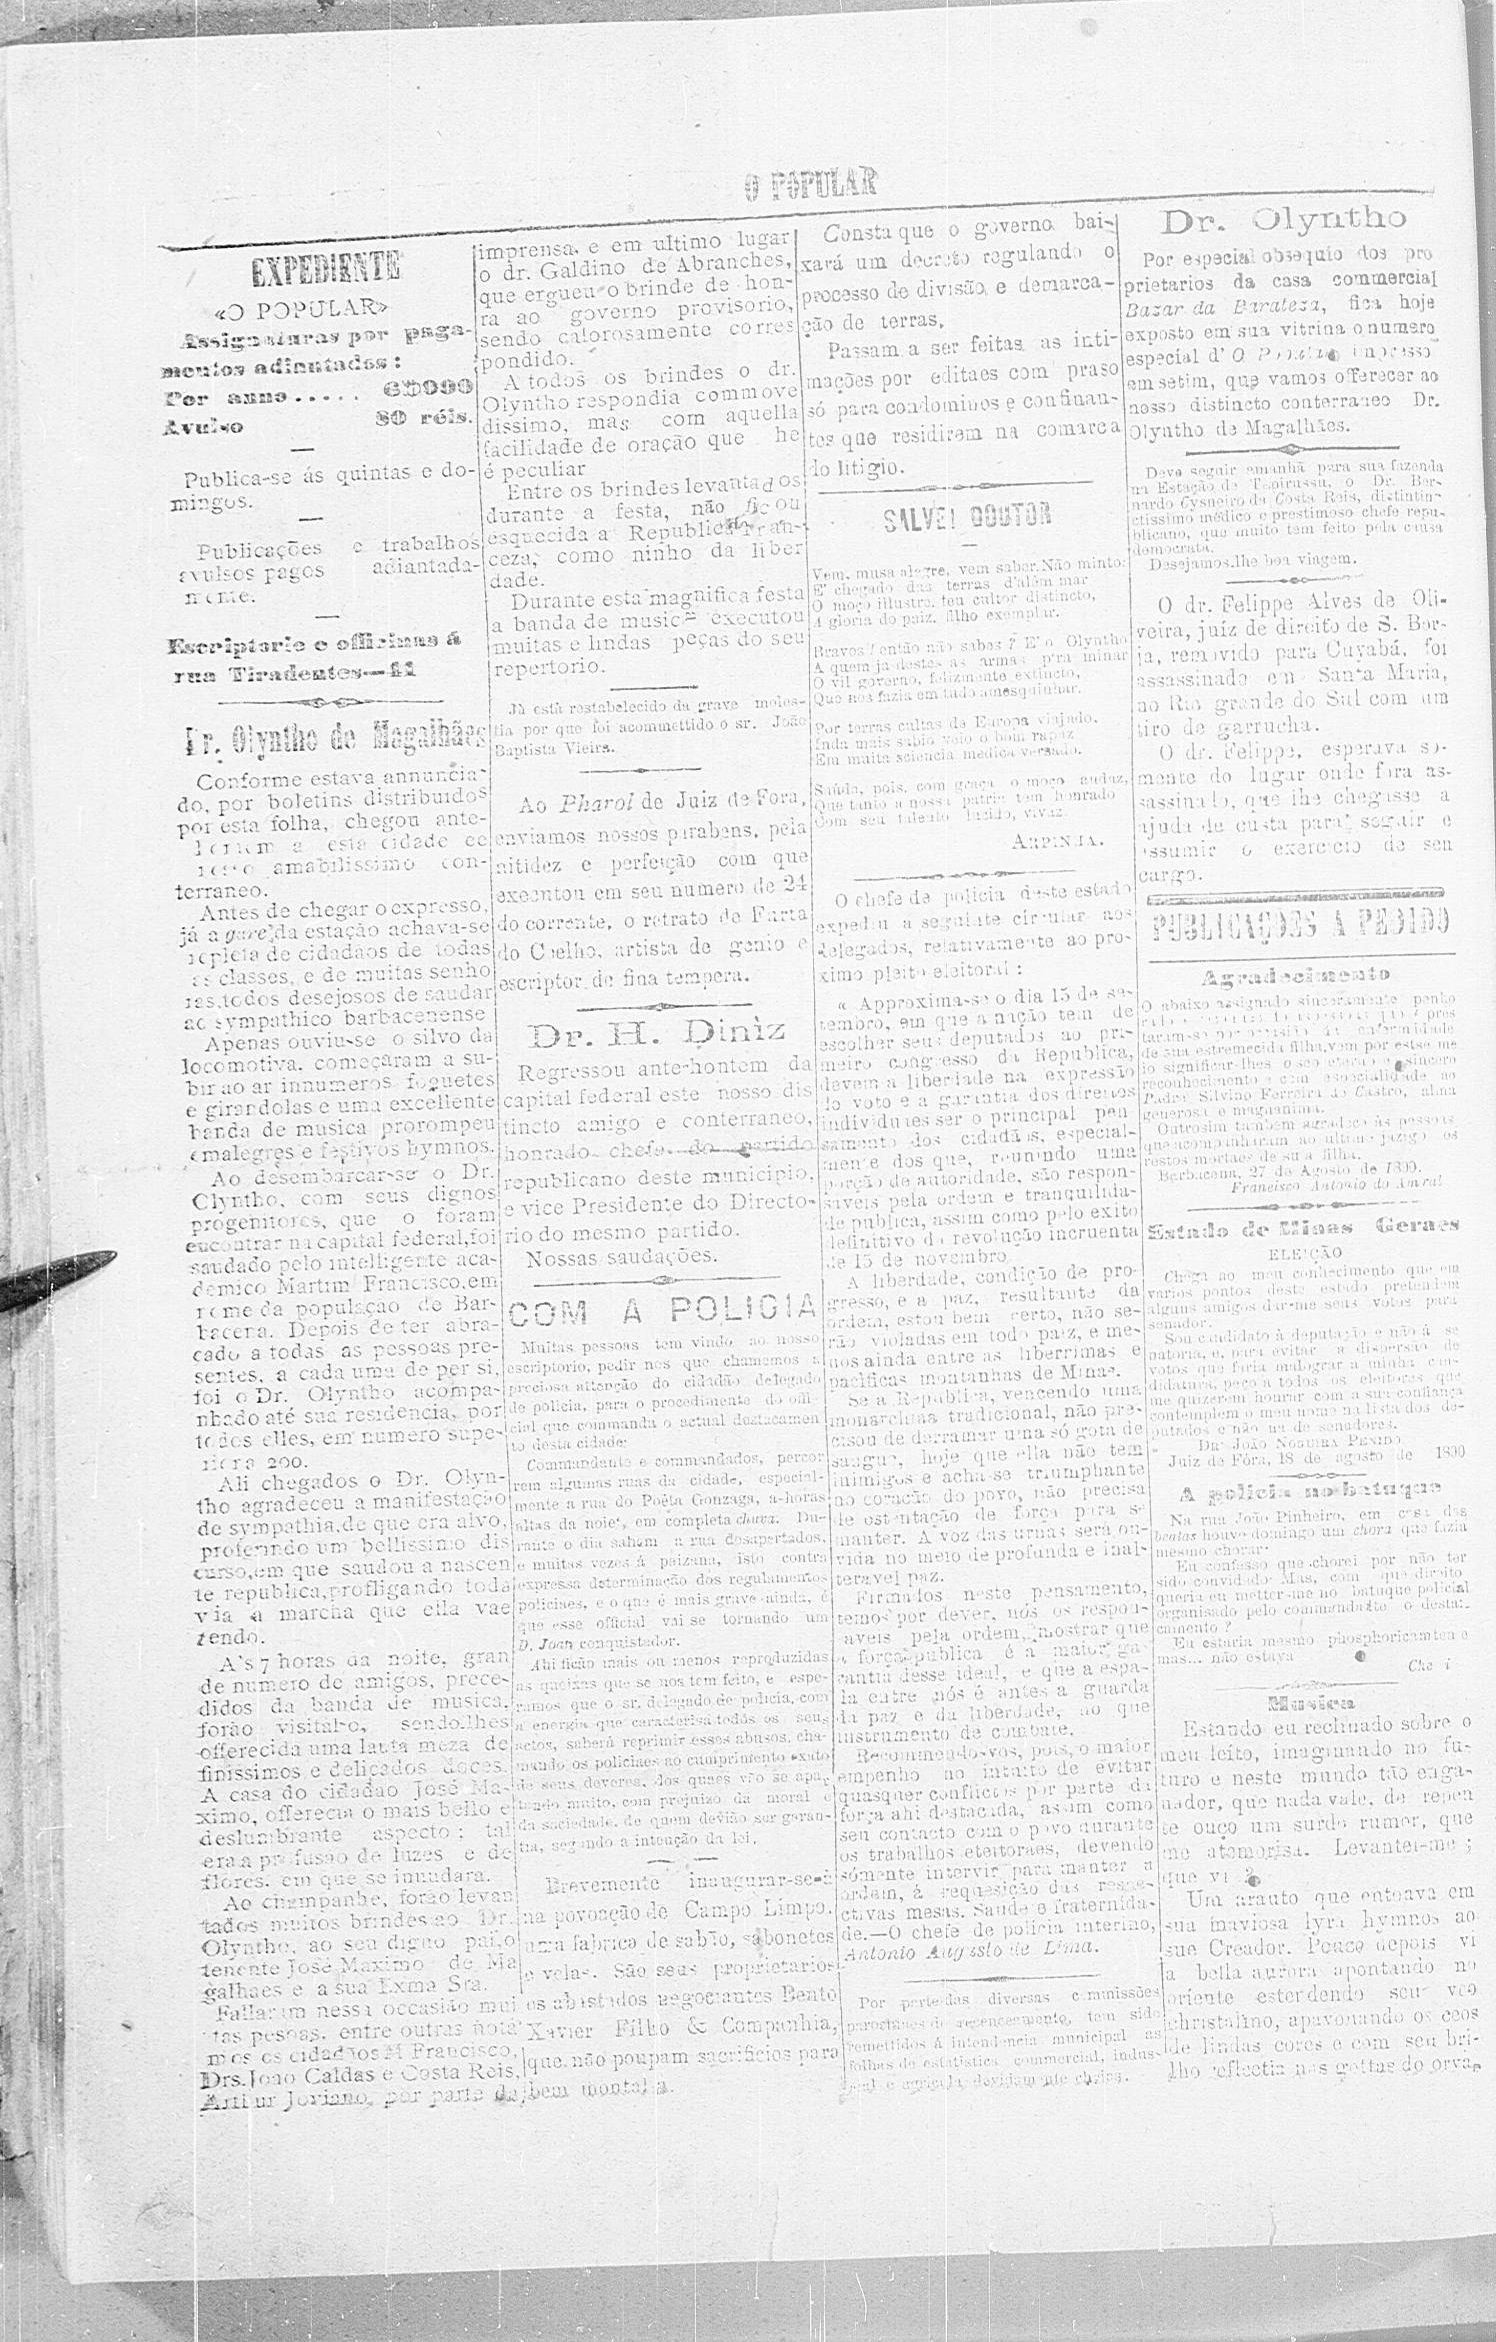 O POPULAR
EXPEDIENTE
«O POPULAR»
Assignaturas por paga-
mentos adiantados:
Por anno..... 6$000
Avulso 80 réis.
Publica-se ás quintas e do-
mingos.
Publicações e trabalhos
avulsos pagos adiantada-
mente.
Escriptorio e officinas á
rua Tiradentes—11
Dr. Olyntho de Magalhães
Conforme estava annuncia-
do, por boletins distribuidos
por esta folha, chegou ante-
hontem a esta cidade ce
nosso amabilissimo con-
terraneo.
Antes de chegar o expresso,
já a gare da estação achava-se
repleta de cidadãos de todas
as classes, e de muitas senho
ras, todos desejosos de saudar
ao sympathico barbacenense
Apenas ouviu-se o silvo da
locomotiva, começaram a su-
bir ao ar innumeros foguetes
e girandolas e uma excellente
banda de musica prorompeu
em alegres e festivos hymnos.
Ao desembarcar-se o Dr.
Olyntho, com seus dignos
progenitores, que o foram
encontrar na capital federal, foi
saudado pelo intelligente aca-
demico Martim Francisco, em
nome da população de Bar-
bacena. Depois de ter abra-
çado a todas as pessoas pre-
sentes, a cada uma de per si,
foi o Dr. Olyntho acompa-
nhado até sua residencia, por
todos elles, em numero supe-
rior a 200.
Ali chegados o Dr. Olyn-
tho agradeceu a manifestação
de sympathia, de que era alvo,
proferindo um bellissimo dis
curso, em que saudou a nascen
te republica, profligando toda
via a marcha que ella vae
tendo.
A's 7 horas da noite, gran
de numero de amigos, prece-
didos da banda de musica,
forão visital-o, sendo-lhes
offerecida uma lauta meza de
finissimos e delicados doces.
A casa do cidadão José Ma-
ximo, offerecia o mais bello e
deslumbrante aspecto; tal
era a profusão de luzes e de
flores, em que se inundara.
Ao champanhe, forão levan
tados muitos brindes ao Dr.
Olyntho, ao seu digno pai, o
tenente José Maximo de Ma
galhães e a sua Exma Sra.
Fallaram nessa occasião mui
tas pesoas, entre outras nota
mos os cidadãos M Francisco,
Drs. João Caldas e Costa Reis,
Arthur Joviano, por parte da
imprensa, e em ultimo lugar
o dr. Galdino de Abranches,
que ergueu o brinde de hon-
ra ao governo provisorio,
sendo calorosamente corres
pondido.
A todos os brindes o dr.
Olyntho respondia commove
dissimo, mas com aquella
facilidade de oração que lhe
é peculiar
Entre os brindes levantados
durante a festa, não ficou
esquecida a Republica Fran-
ceza, como ninho da liber
dade.
Durante esta magnifica festa
a banda de musica executou
muitas e lindas peças do seu
repertorio.
Já está restabelecido da grave moles-
tia por que foi acommettido o sr. João
Baptista Vieira.
Ao Pharol de Juiz de Fora,
enviamos nossos parabens, pela
nitidez e perfeição com que
executou em seu numero de 24
do corrente, o retrato de Furta
do Coelho, artista de genio e
escriptor de fina tempera.
Dr. H. Diniz
Regressou ante-hontem da
capital federal este nosso dis
tincto amigo e conterraneo,
honrado chefe do partido
republicano deste municipio,
e vice Presidente do Directo-
rio do mesmo partido.
Nossas saudações.
COM A POLICIA
Muitas pessoas tem vindo ao nosso
escriptorio, pedir nos que chamemos a
preciosa attenção do cidadão delegado
de policia, para o procedimento do offi
cial que commanda o actual destacamen
to desta cidade:
Commandante e commandados, percor
rem algumas ruas da cidade, especial-
mente a rua do Poêta Gonzaga, a horas
altas da noite, em completa chuva. Du-
rante o dia sahem á rua desapertados,
e muitas vezes á paizana, isto contra
expressa determinação dos regulamentos
policiaes, e o que é mais grave ainda, é
que esse official vai se tornando um
D. Joan conquistador.
Ahi ficão mais ou menos reproduzidas
as queixas que se nos tem feito, e espe-
ramos que o sr. delegado de policia, com
a energia que caracterisa todos os seus
actos, saberá reprimir esses abusos, cha-
mando os policiaes ao cumprimento exato
de seus deveres, dos quaes vão se apar
tando muito, com prejuizo da moral e
da sociedade, de quem devião ser garan-
tia, segundo a intenção da lei.
Brevemente inaugurar-se-á
na povoação de Campo Limpo,
uma fabrica de sabão, sabonetes
e velas. São seus proprietarios
os abastados negociantes Bento
Xavier Filho & Companhia,
que não poupam sacrificios para
bem montal-a.
Consta que o governo bai-
xará um decreto regulando o
processo de divisão e demarca-
ção de terras.
Passam a ser feitas as inti-
mações por editaes com praso
só para condominos e confinan-
tes que residirem na comarca
do litigio.
SALVE! DOUTOR
Vem, musa alegre, vem saber. Não minto:
E' chegado das terras d'além mar
O moço illustre, teu cultor distincto,
A gloria do paiz, filho exemplar.
Bravos! então não sabes? E' o Olyntho
A quem já destes as armas p'ra minar
O vil governo, felizmente extincto,
Que nos fazia em tudo amesquinhar.
Por terras cultas da Europa viajado,
Inda mais sabio veio o bom rapaz
Em muita sciencia medica versado.
Saúda, pois, com graça o moço audaz,
Que tanto a nossa patria tem honrado
Com seu talento lucido, vivaz.
ARPINJA.
O chefe de policia deste estado
expediu a seguinte circular aos
delegados, relativamente ao pro-
ximo pleito eleitoral:
« Approxima-se o dia 15 de se-
tembro, em que a nação tem de
escolher seus deputados ao pri-
meiro congresso da Republica,
devem a liberdade na expressão
do voto e a garantia dos direitos
individuaes ser o principal pen-
samento dos cidadãos, especial-
mente dos que, reunindo uma
porção de autoridade, são respon-
saveis pela ordem e tranquilida-
de publica, assim como pelo exito
definitivo da revolução incruenta
de 15 de novembro.
A liberdade, condição de pro-
gresso, e a paz, resultante da
ordem, estou bem certo, não se-
rão violadas em todo paiz, e me-
nos ainda entre as liberrimas e
pacificas montanhas de Minas.
Se a Republica, vencendo uma
monarchia tradicional, não pre-
cisou de derramar uma só gota de
sangue, hoje que ella não tem
inimigos e acha-se triumphante
no coração do povo, não precisa
de ostentação de força para se
manter. A voz das urnas será ou-
vida no meio de profunda e inal-
teravel paz.
Firmados neste pensamento,
temos por dever, nós os respon-
aveis pela ordem, mostrar que
a força publica é a maior ga-
rantia desse ideal, e que a espa-
da entre nós é antes a guarda
da paz e da liberdade, do que
instrumento de combate.
Recommendo-vos, pois, o maior
empenho no intuito de evitar
quasquer conflictos por parte da
força ahi destacada, assim como
seu contacto com o povo durante
os trabalhos eleitoraes, devendo
sómente intervir para manter a
ordem, á requesição das respe-
ctivas mesas. Saude e fraternida-
de.—O chefe de policia interino,
Antonio Augusto de Lima.
Por parte das diversas commissões
parochiaes de recenceamento, tem sido
remettidos á intendencia municipal as
folhas de estatistica commercial, indus-
trial e agricola devidamente cheias.
Dr. Olyntho
Por especial obsequio dos pro
prietarios da casa commercial
Bazar da Barateza, fica hoje
exposto em sua vitrina o numero
especial d' O Popular impresso
em setim, que vamos offerecer ao
nosso distincto conterraneo Dr.
Olyntho de Magalhães.
Deve seguir amanhã para sua fazenda
na Estação de Tapirussú, o Dr. Ber-
nardo Cysneiro da Costa Reis, distintin-
ctissimo médico e prestimoso chefe repu-
blicano, que muito tem feito pela causa
democrata.
Desejamos.lhe boa viagem.
O dr. Felippe Alves de Oli-
veira, juiz de direito de S. Bor-
ja, removido para Cuyabá, foi
assassinado em Santa Maria,
no Rio grande do Sul com um
tiro de garrucha.
O dr. Felippe, esperava so-
mente do lugar onde fôra as-
sassinado, que lhe chegasse a
ajuda de custa para seguir e
assumir o exercicio de seu
cargo.
PUBLICAÇÕES A PEDIDO
Agradecimento
O abaixo assignado sinceramente penho
taram-se por occasião enfermidade
de sua estremecida filha, vem por este me
io significar-lhes o seo eterno e sincero
reconhecimento e com especialidade ao
Padre Silvino Ferreira de Castro, alma
generosa e magnanima.
Outrosim tambem agradece ás pessoas
que acompanharam ao ultimo jazigo os
restos mortaes de sua filha.
Barbacena, 27 de Agosto de 1890.
Francisco Antonio do Amaral
Estado de Minas Geraes
ELEIÇÃO
Chega ao meu conhecimento que em
varios pontos deste estado pretendem
alguns amigos dar-me seus votos para
senador.
Sou candidato á deputação e não á se
natoria, e, para evitar a dispersão de
votos que faria malograr a minha can-
didatura, peço a todos os eleitores que
me quizerem honrar com a sua confiança
contemplem o meu nome na lista dos de-
putados e não na de senadores.
DR. JOÃO NOGUEIRA PENIDO
Juiz de Fóra, 18 de agosto de 1890
A policia no batuque
Na rua João Pinheiro, em casa das
beatas houve domingo um chora que fazia
mesmo chorar.
Eu confesso que chorei por não ter
sido convidado Mas, com que direito
queria eu metter-me no batuque policial
organisado pelo commandante o desta:
camento?
Eu estaria mesmo phosphoricamente
mas... não estava
Musica
Estando eu reclinado sobre o
meu leito, imaginando no fu-
turo e neste mundo tão enga-
nador, que nada vale, de repen
te ouço um surdo rumor, que
me atemorisa. Levantei-me;
que vi?
Um arauto que entoava em
sua maviosa lyra hymnos ao
sue Creador. Pouco depois vi
a bella aurora apontando no
oriente estendendo seu veo
christalino, apavonando os ceos
de lindas cores e com seu bri-
lho reflectia nas gottas do orva-